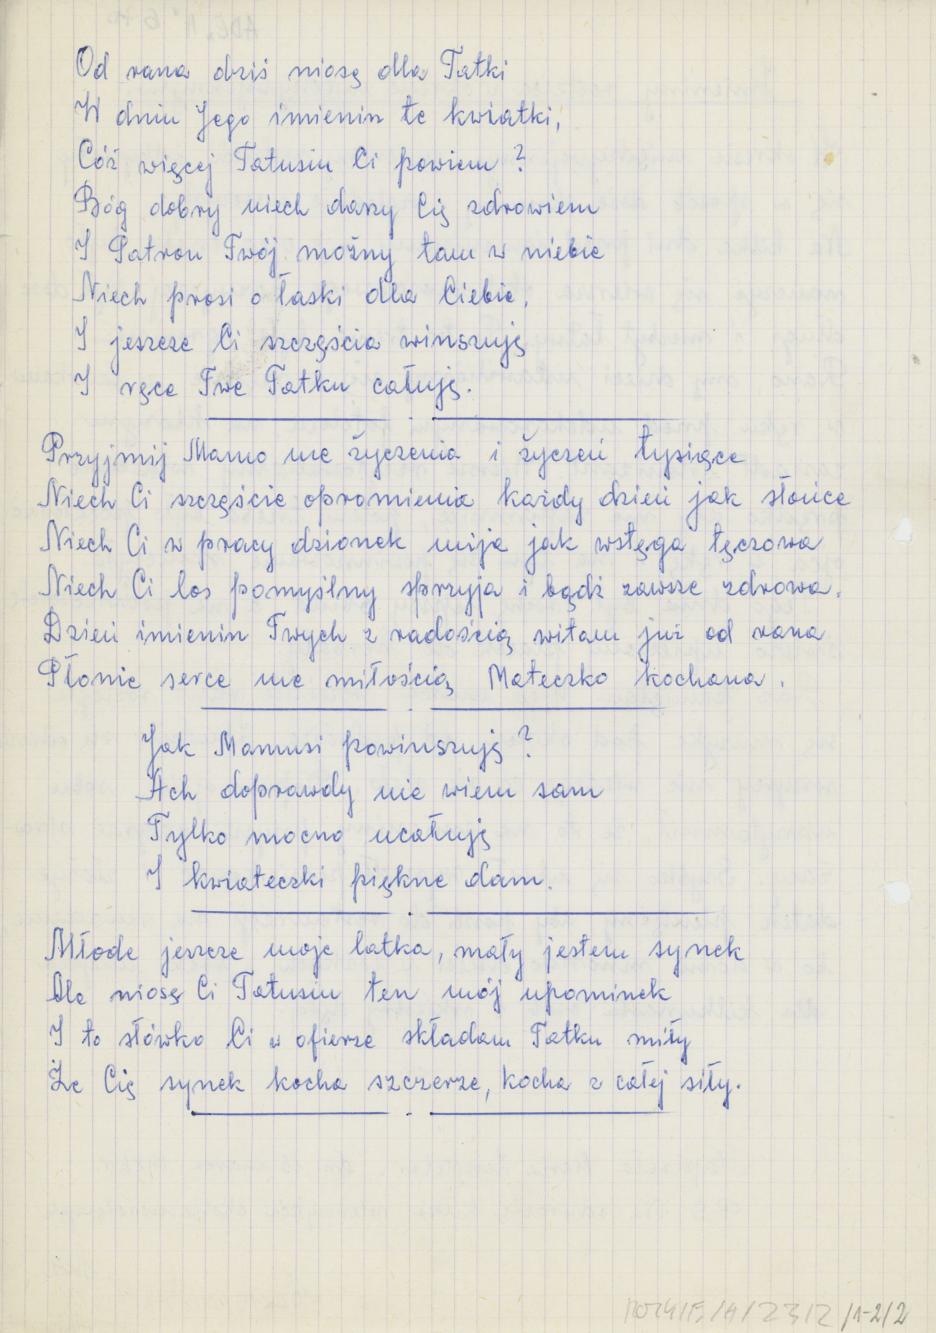 Od rana dziś niosę dla Tatki
W dniu Jego imienin te kwiatki,
Cóż więcej Tatusiu Ci powiem?
Bóg dobry niech darzy Cię zdrowiem
I Patron Twój możny tam w niebie
Niech prosi o łaski dla Ciebie,
I jeszcze Ci szczęścia winszuję
I ręce Twe Tatku całuję.
Przyjmij Mamo me życzenia i życzeń tysiące
Niech Ci szczęście opromienia każdy dzień jak słońce
Niech Ci w pracy dzionek mija jak wstęga tęczowa
Niech Ci los pomyślny sprzyja i bądź zawsze zdrowa.
Dzień imienin Twych z radością witam już od rana
Płonie serce me miłością Mateczko kochana.
Jak Mamusi powinszuję?
Ach doprawdy nie wiem sam
Tylko mocno ucałuję
I kwiateczki piękne dam.
Młode jeszcze moje latka, mały jestem synek
Ale niosę Ci Tatusiu ten mój upominek
I to słówko Ci w ofierze składam Tatku miły
Że Cię synek kocha szczerze, kocha z całej siły.